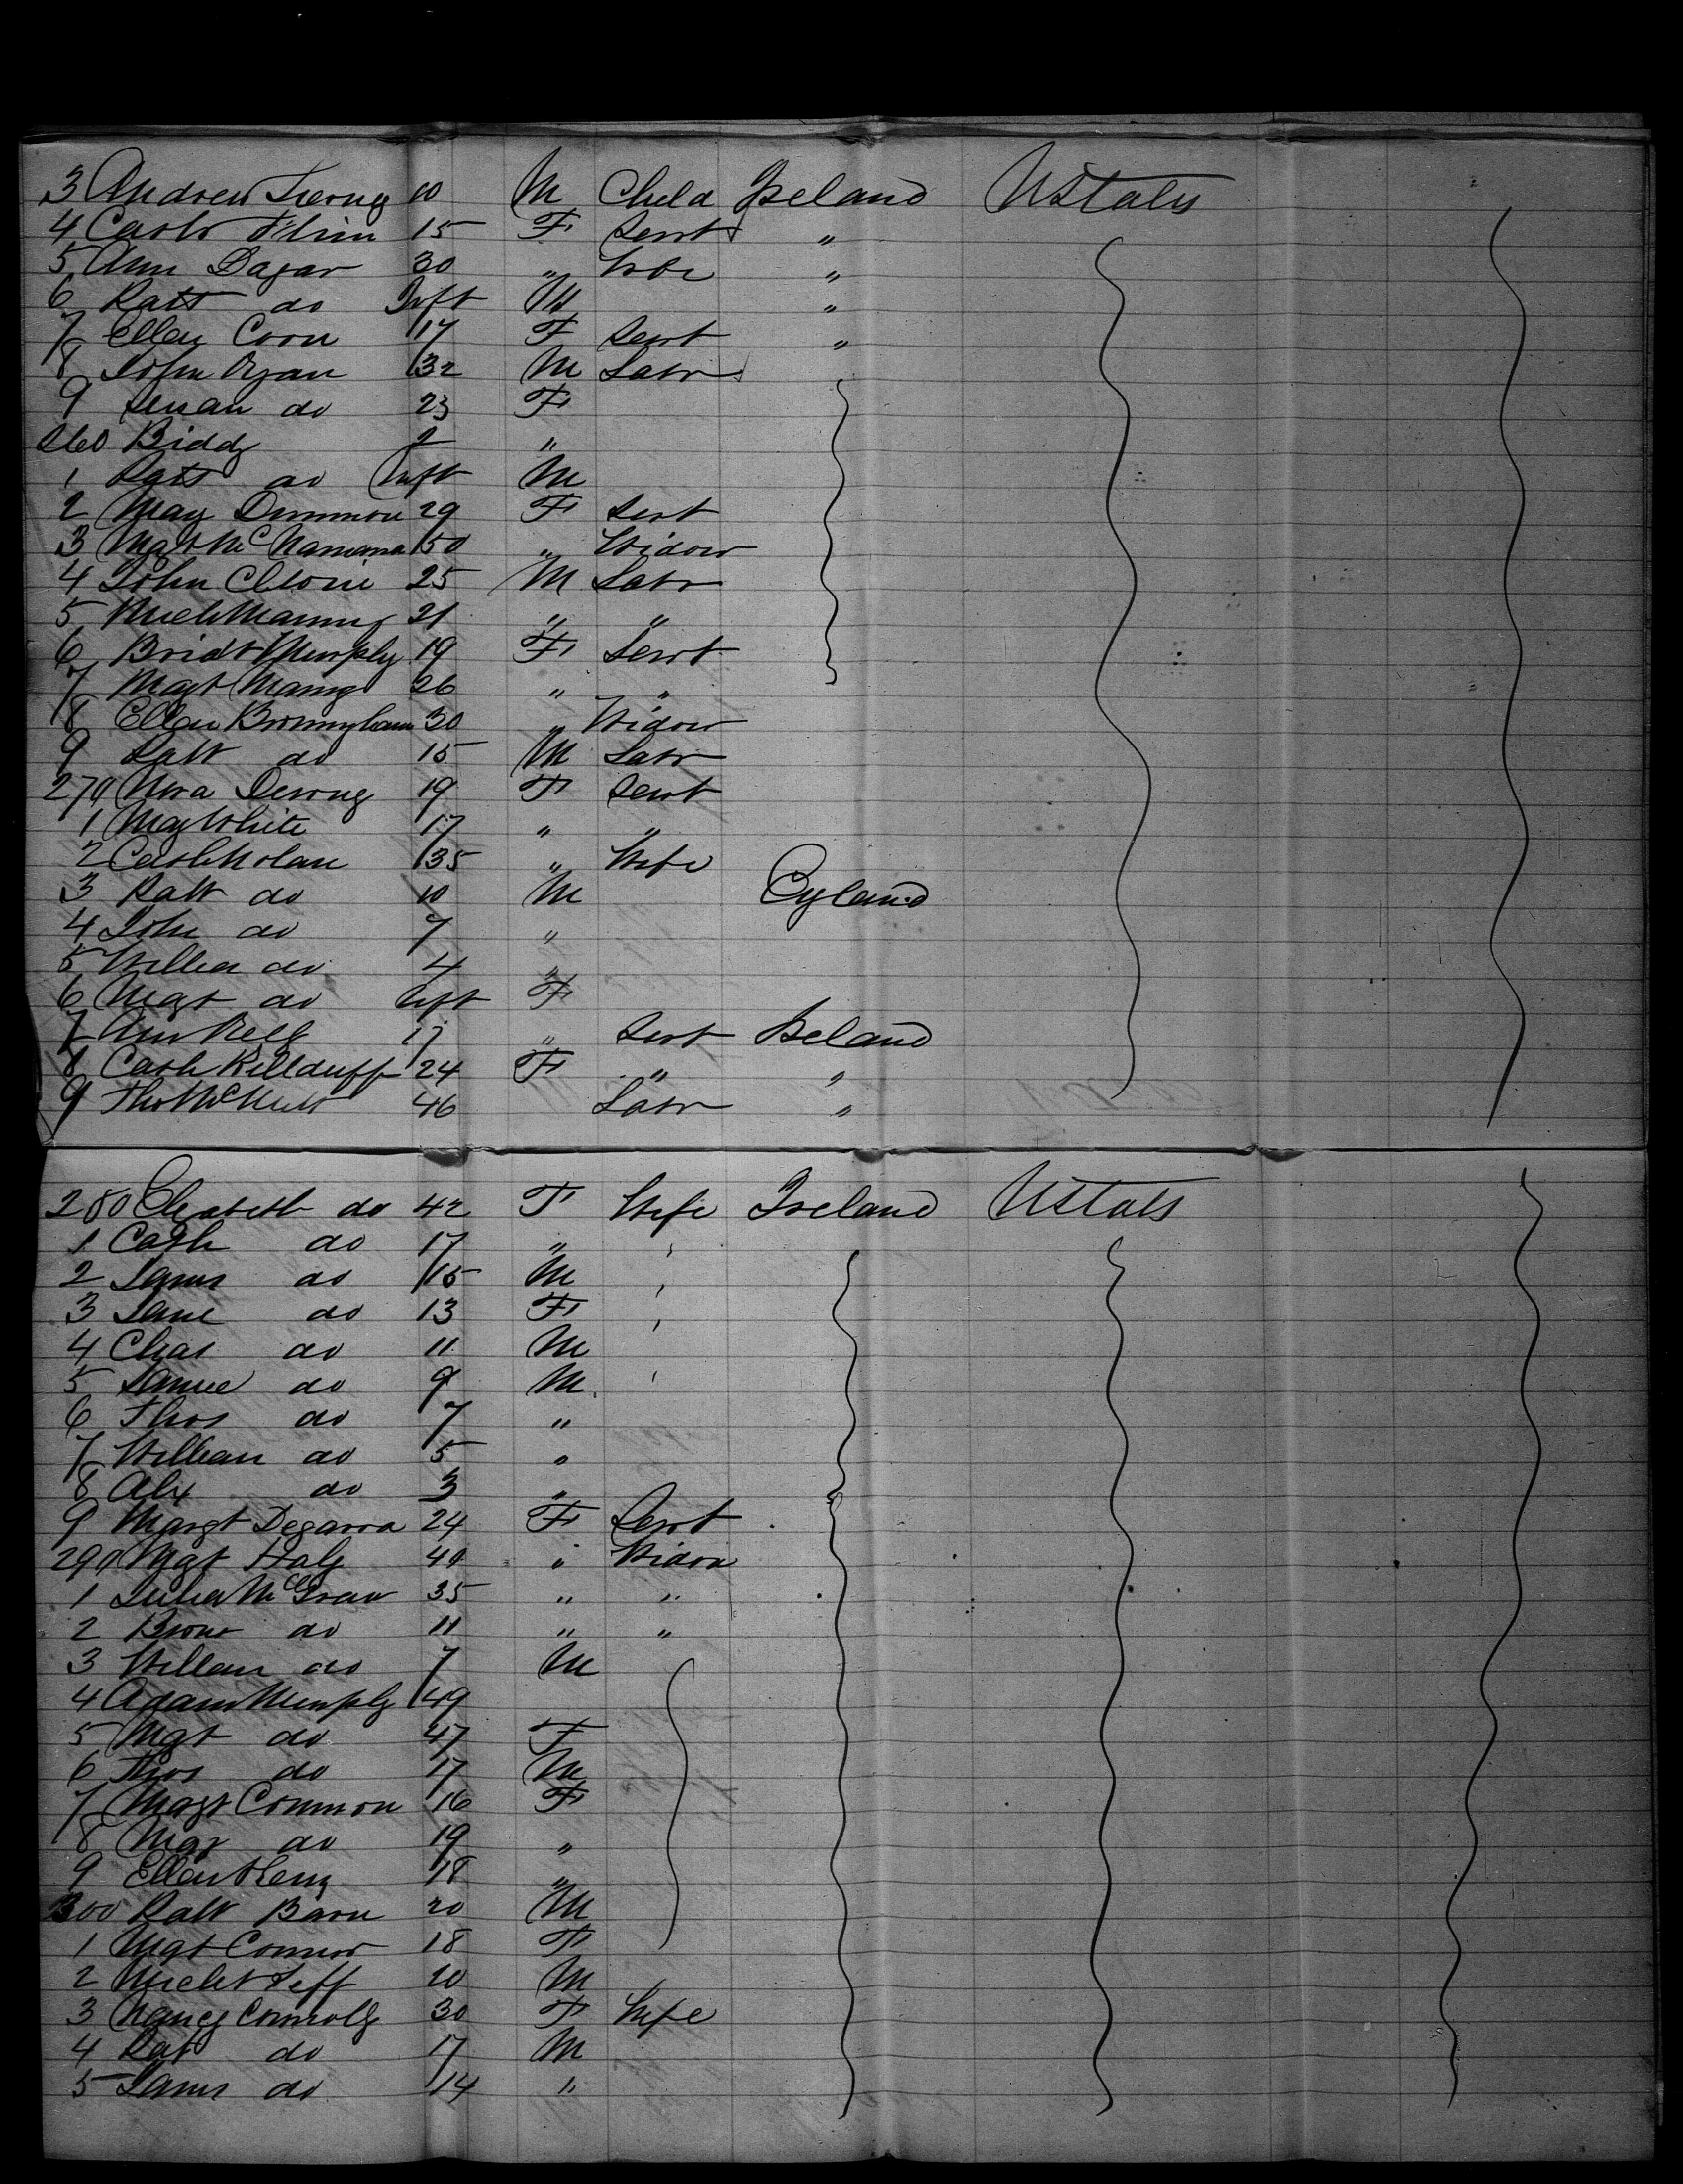 3 Andrew Tierny 10 M Child Ireland UStates
4 Cath Flinn 15 F Servt "
5 Ann Dagar 30 " Wife "
6 Patt do Inft M "
7 Ellen Coon 17 F Servt "
8 John Ryan 32 M Labr
9 Susan do 23 F
260 Biddy 2 "
1 Patt do Inft M
2 May Dummon 29 F Sert
3 Mat McNamara 50 " Widow
4 John Clorie 25 M Labr
5 Mich Manny 21 " "
6 Bridt Murphy 19 F Servt
7 Magt Mang 26 " "
8 Ellen Bromingham 30 " Widow
9 Patt do 15 M Labr
270 Nora Derony 19 F Servt
1 May White 17 " "
2 Cath Nolan 35 " Wife
3 Patt do 10 M England
4 John do 7 "
5 Willia do 4 "
6 Magt do Inft F
7 Ann Kell 17 " Sert Ireland
8 Cath Killduff 24 F " "
9 Tho 46 Labr "
280 Elizabeth do 42 F Wife Ireland UStates
1 Cath do 17 " '
2 James do 15 M '
3 Jane do 13 F '
4 Chas do 11 M
5 Samuel do 9 M '
6 Thos do 7 "
7 William do 5 "
8 Alx do 3 "
9 Margt Degarra 24 F Servt
290 Mgt Haly 40 " Widow
1 Julia McGraw 35 " "
2 do 11 " "
3 William do 7 M
4 Adam Murphy 49
5 Mgt do 47 F
6 Thos do 17 M
7 Magt Common 16 F
8 May do 19 "
9 Ellen 18 "
300 Patt Barn 20 M
1 Mgt Connor 18 F
2 20 M
3 Nancy Connolly 30 F Wife
4 Pat do 17 M
5 James do 14 "